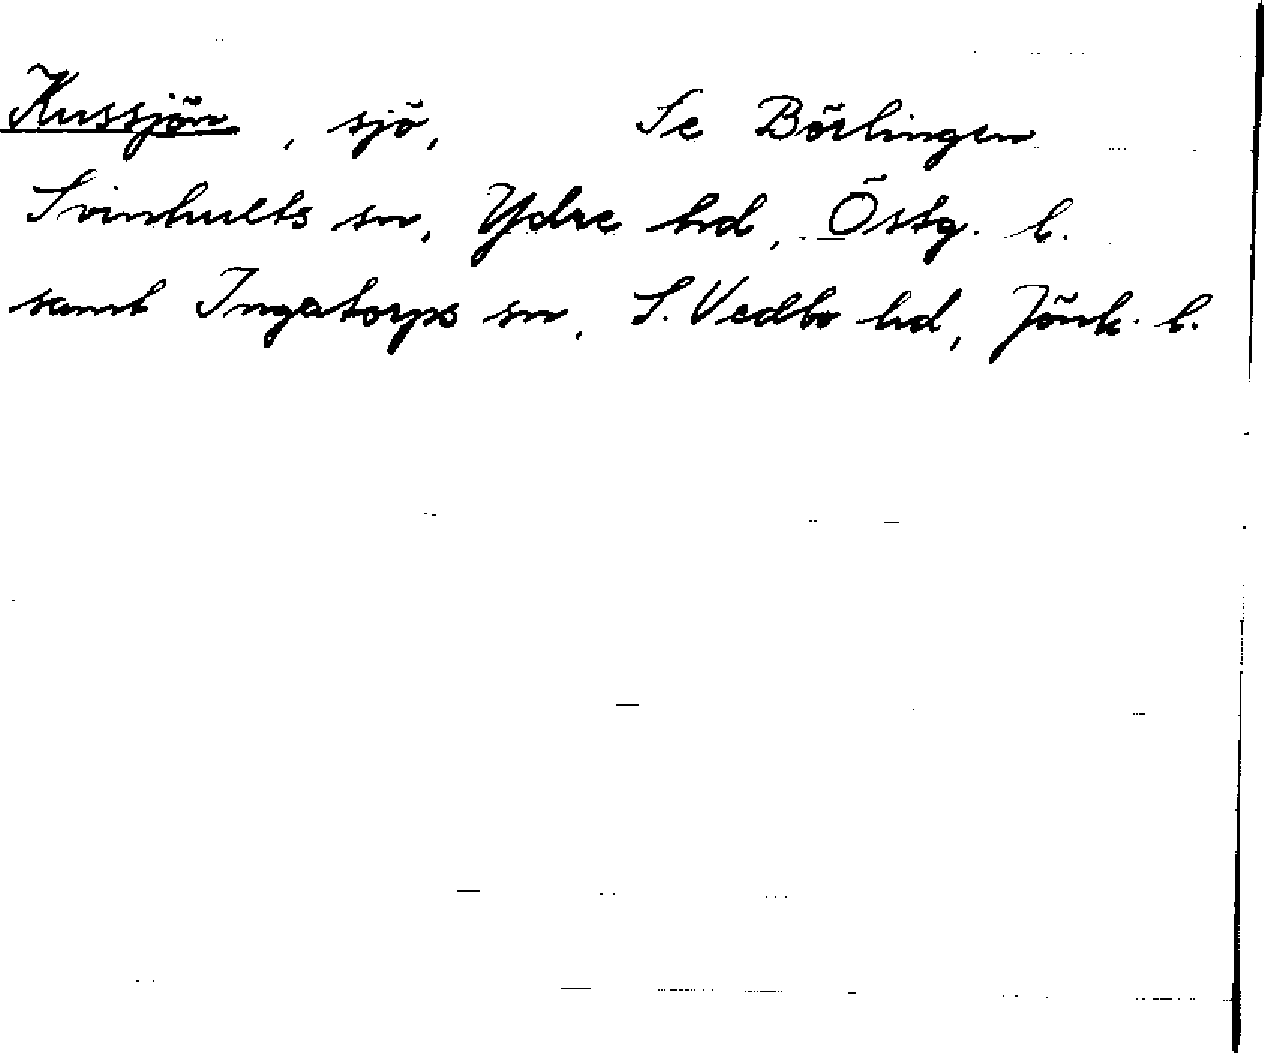 Kussjön, sjö, Se Börlingen
Svinhults sn, Ydre hd, Östg. l.
samt Ingatorps sn, S. Vedbo hd, Jönk. l.